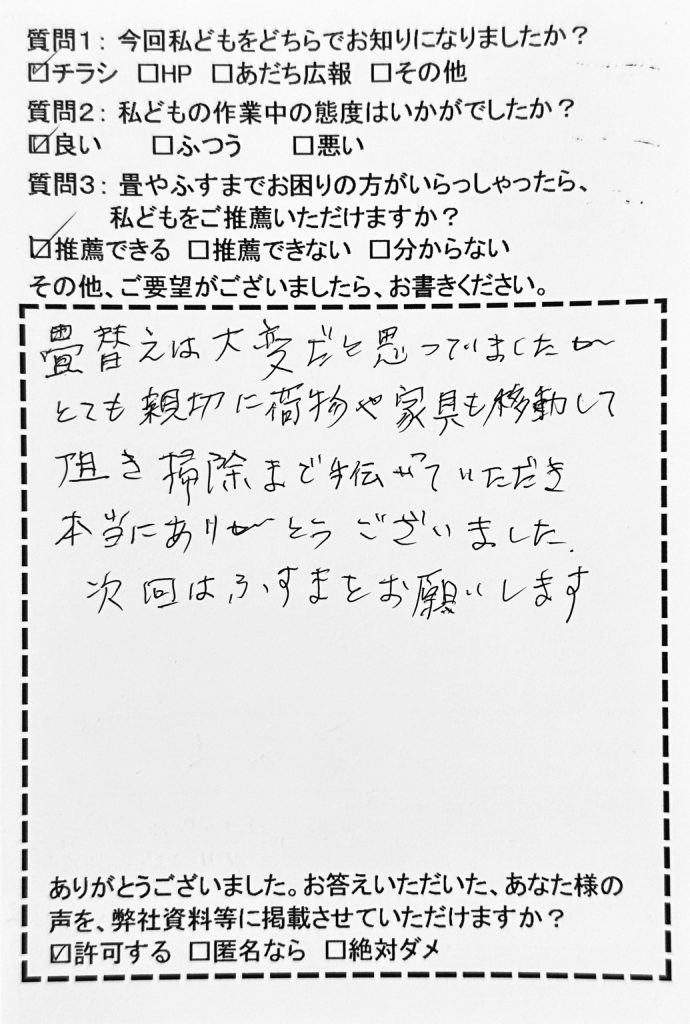 質問1：今回私どもをどちらでお知りになりましたか？
☑チラシ □HP □あだち広報 □その他
質問2：私どもの作業中の態度はいかがでしたか？
☑良い □ふつう □悪い
質問3：畳やふすまでお困りの方がいらっしゃったら、
私どもをご推薦いただけますか？
☑推薦できる □推薦できない □分からない
その他、ご要望がございましたら、お書きください。
畳替えは大変だと思っていましたが
とても親切に荷物や家具も移動して
頂き掃除まで手伝っていただき
本当にありがとうございました.
次回はふすまをお願いします
ありがとうございました。お答えいただいた、あなた様の
声を、弊社資料等に掲載させていただけますか？
☑許可する □匿名なら □絶対ダメ